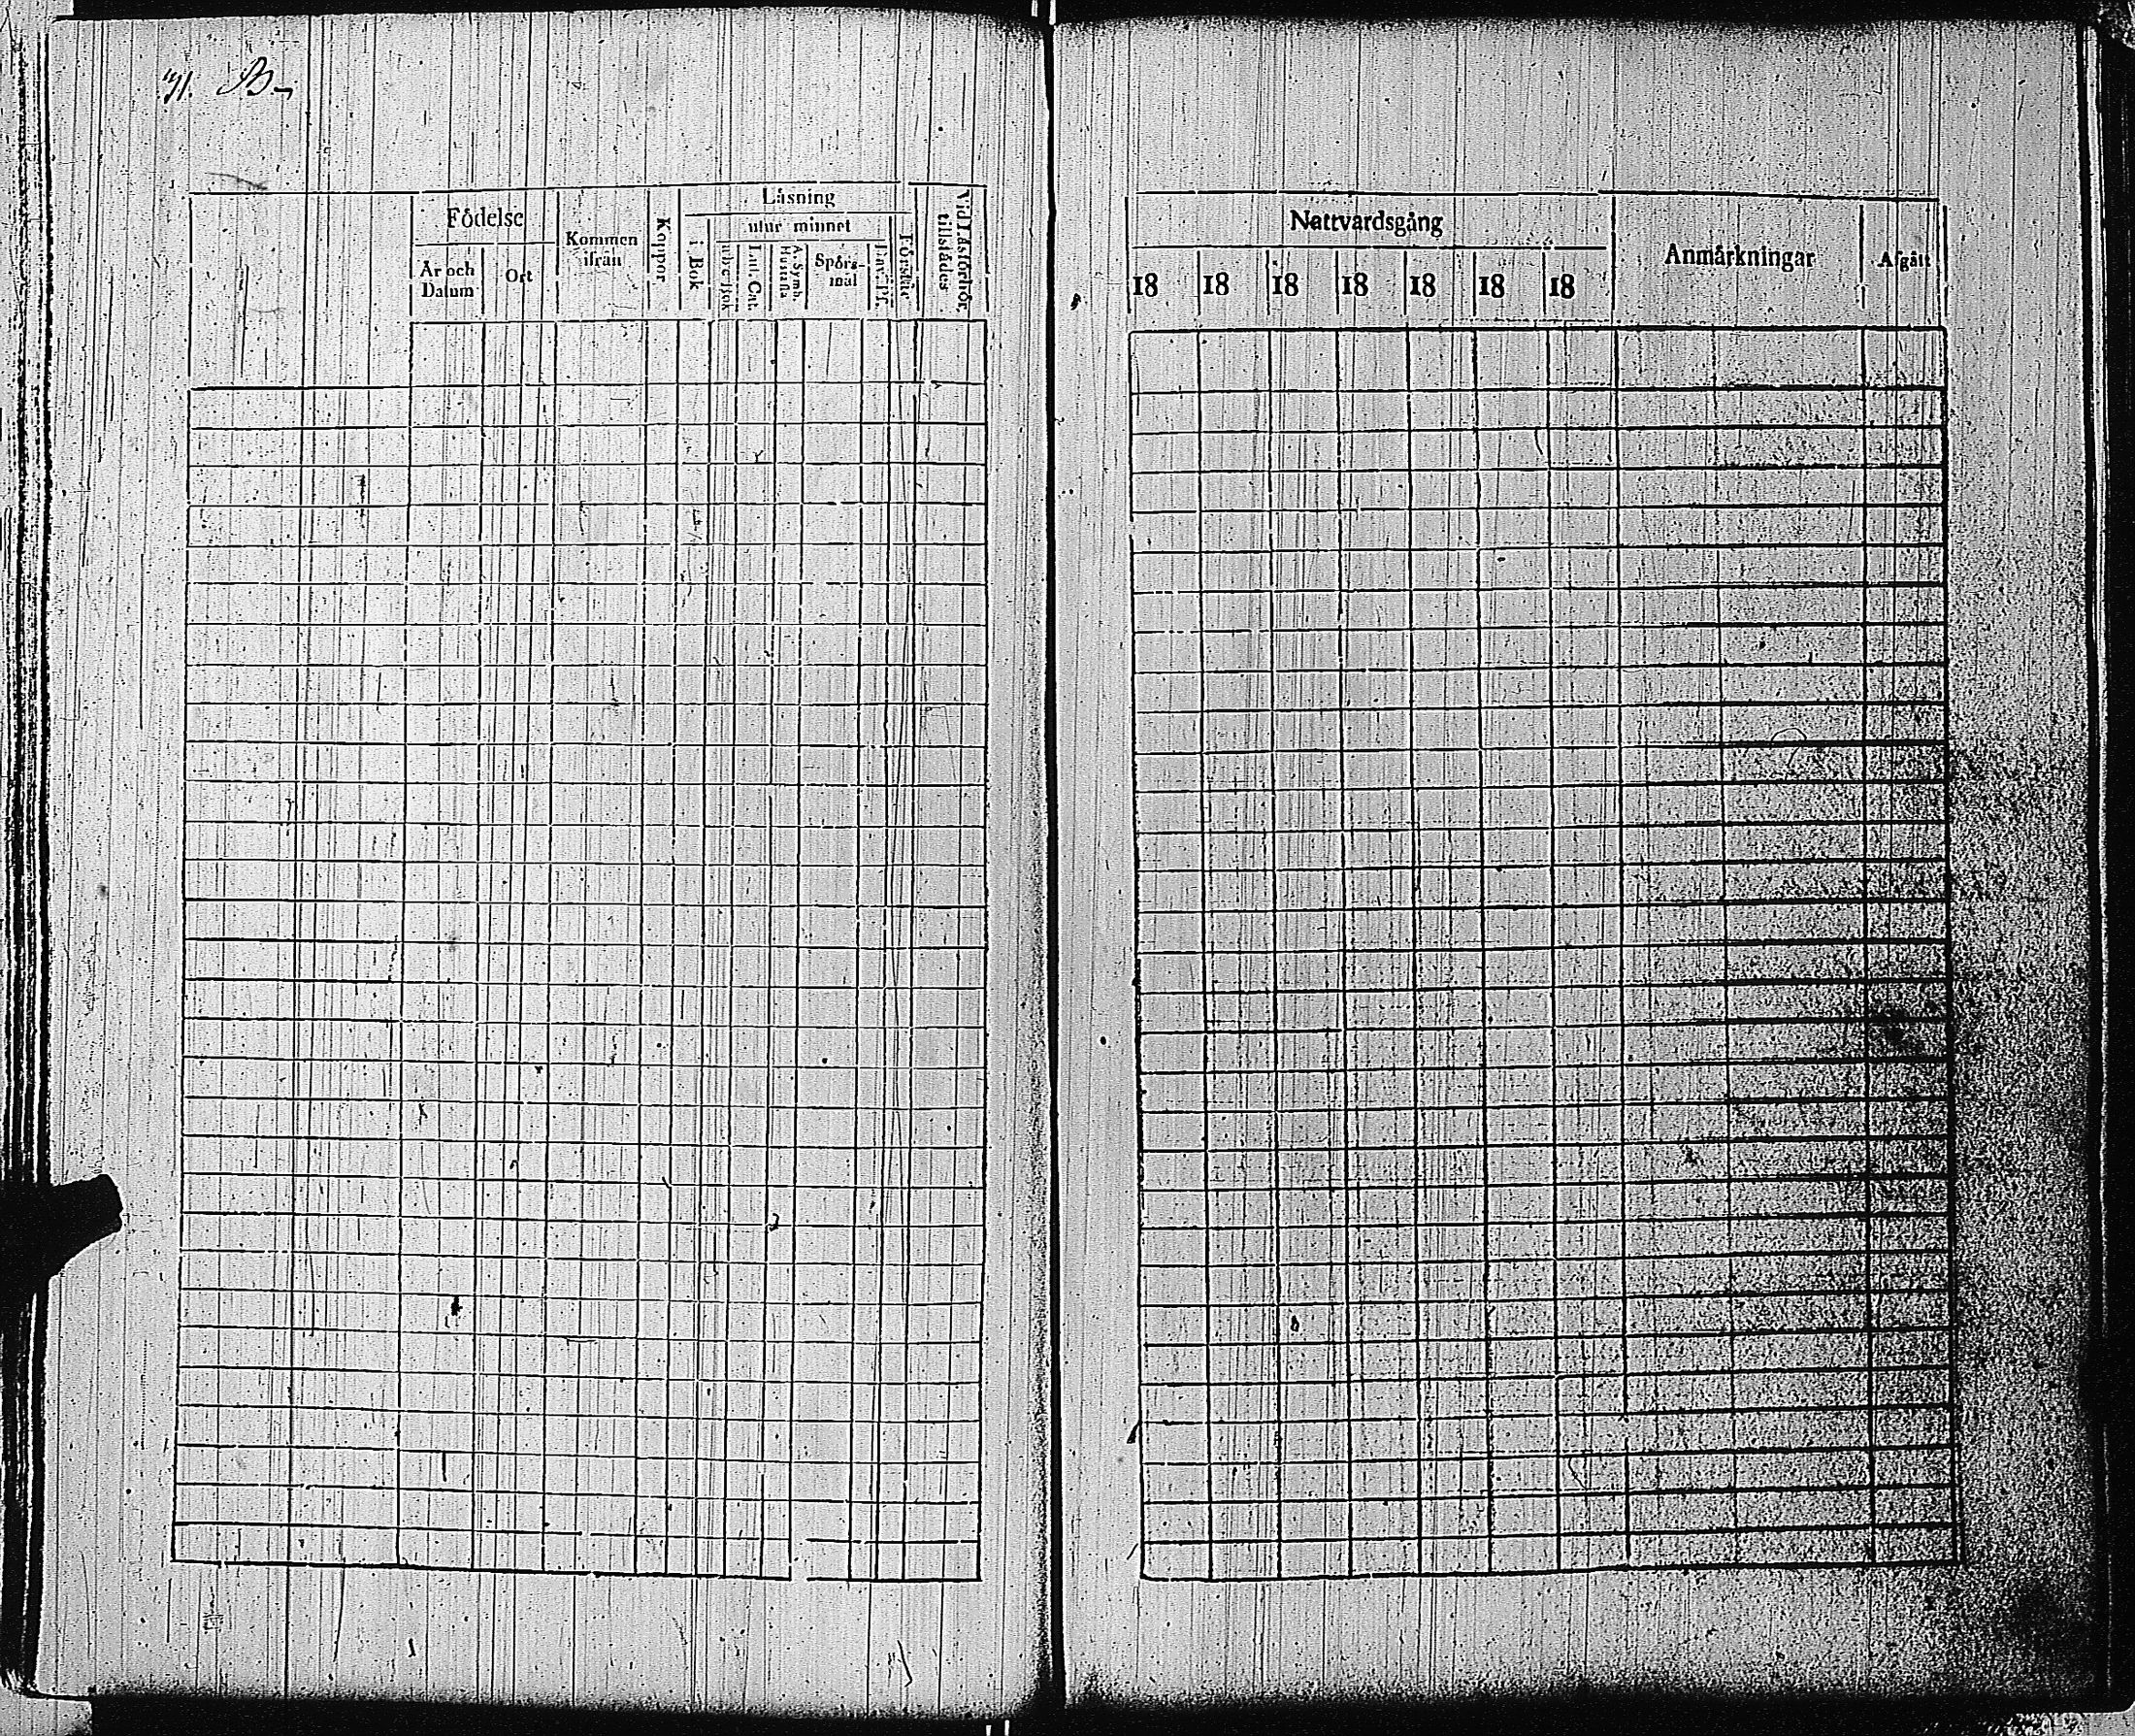 71. B.
Födelse
År och
Datum
Ort
Kommen
ifrån
Koppor
Läsning
i Bok
utur minnet
Luth. Cat.
A. Symb.
Hustafla
Spörs-
mål
Dav. Ps.
Förstår
Vid Läsförhör
tillstädes
Nattvardsgång
18 18 18 18 18 18 18
Anmärkningar
Afgått